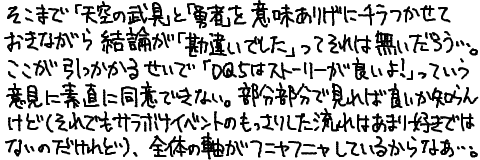 そこまで「天空の武具」と「勇者」を意味ありげにチラつかせて
おきながら結論が「勘違いでした」ってそれは無いだろう…。
ここが引っかかるせいで「DQ5はストーリーが良いよ!」っていう
意見に素直に同意できない。部分部分で見れば良いか知らん
けど(それでもサラボナイベントのもっさりした流れはあまり好きでは
ないのだけれど)、全体の軸がフニャフニャしているからなあ…。